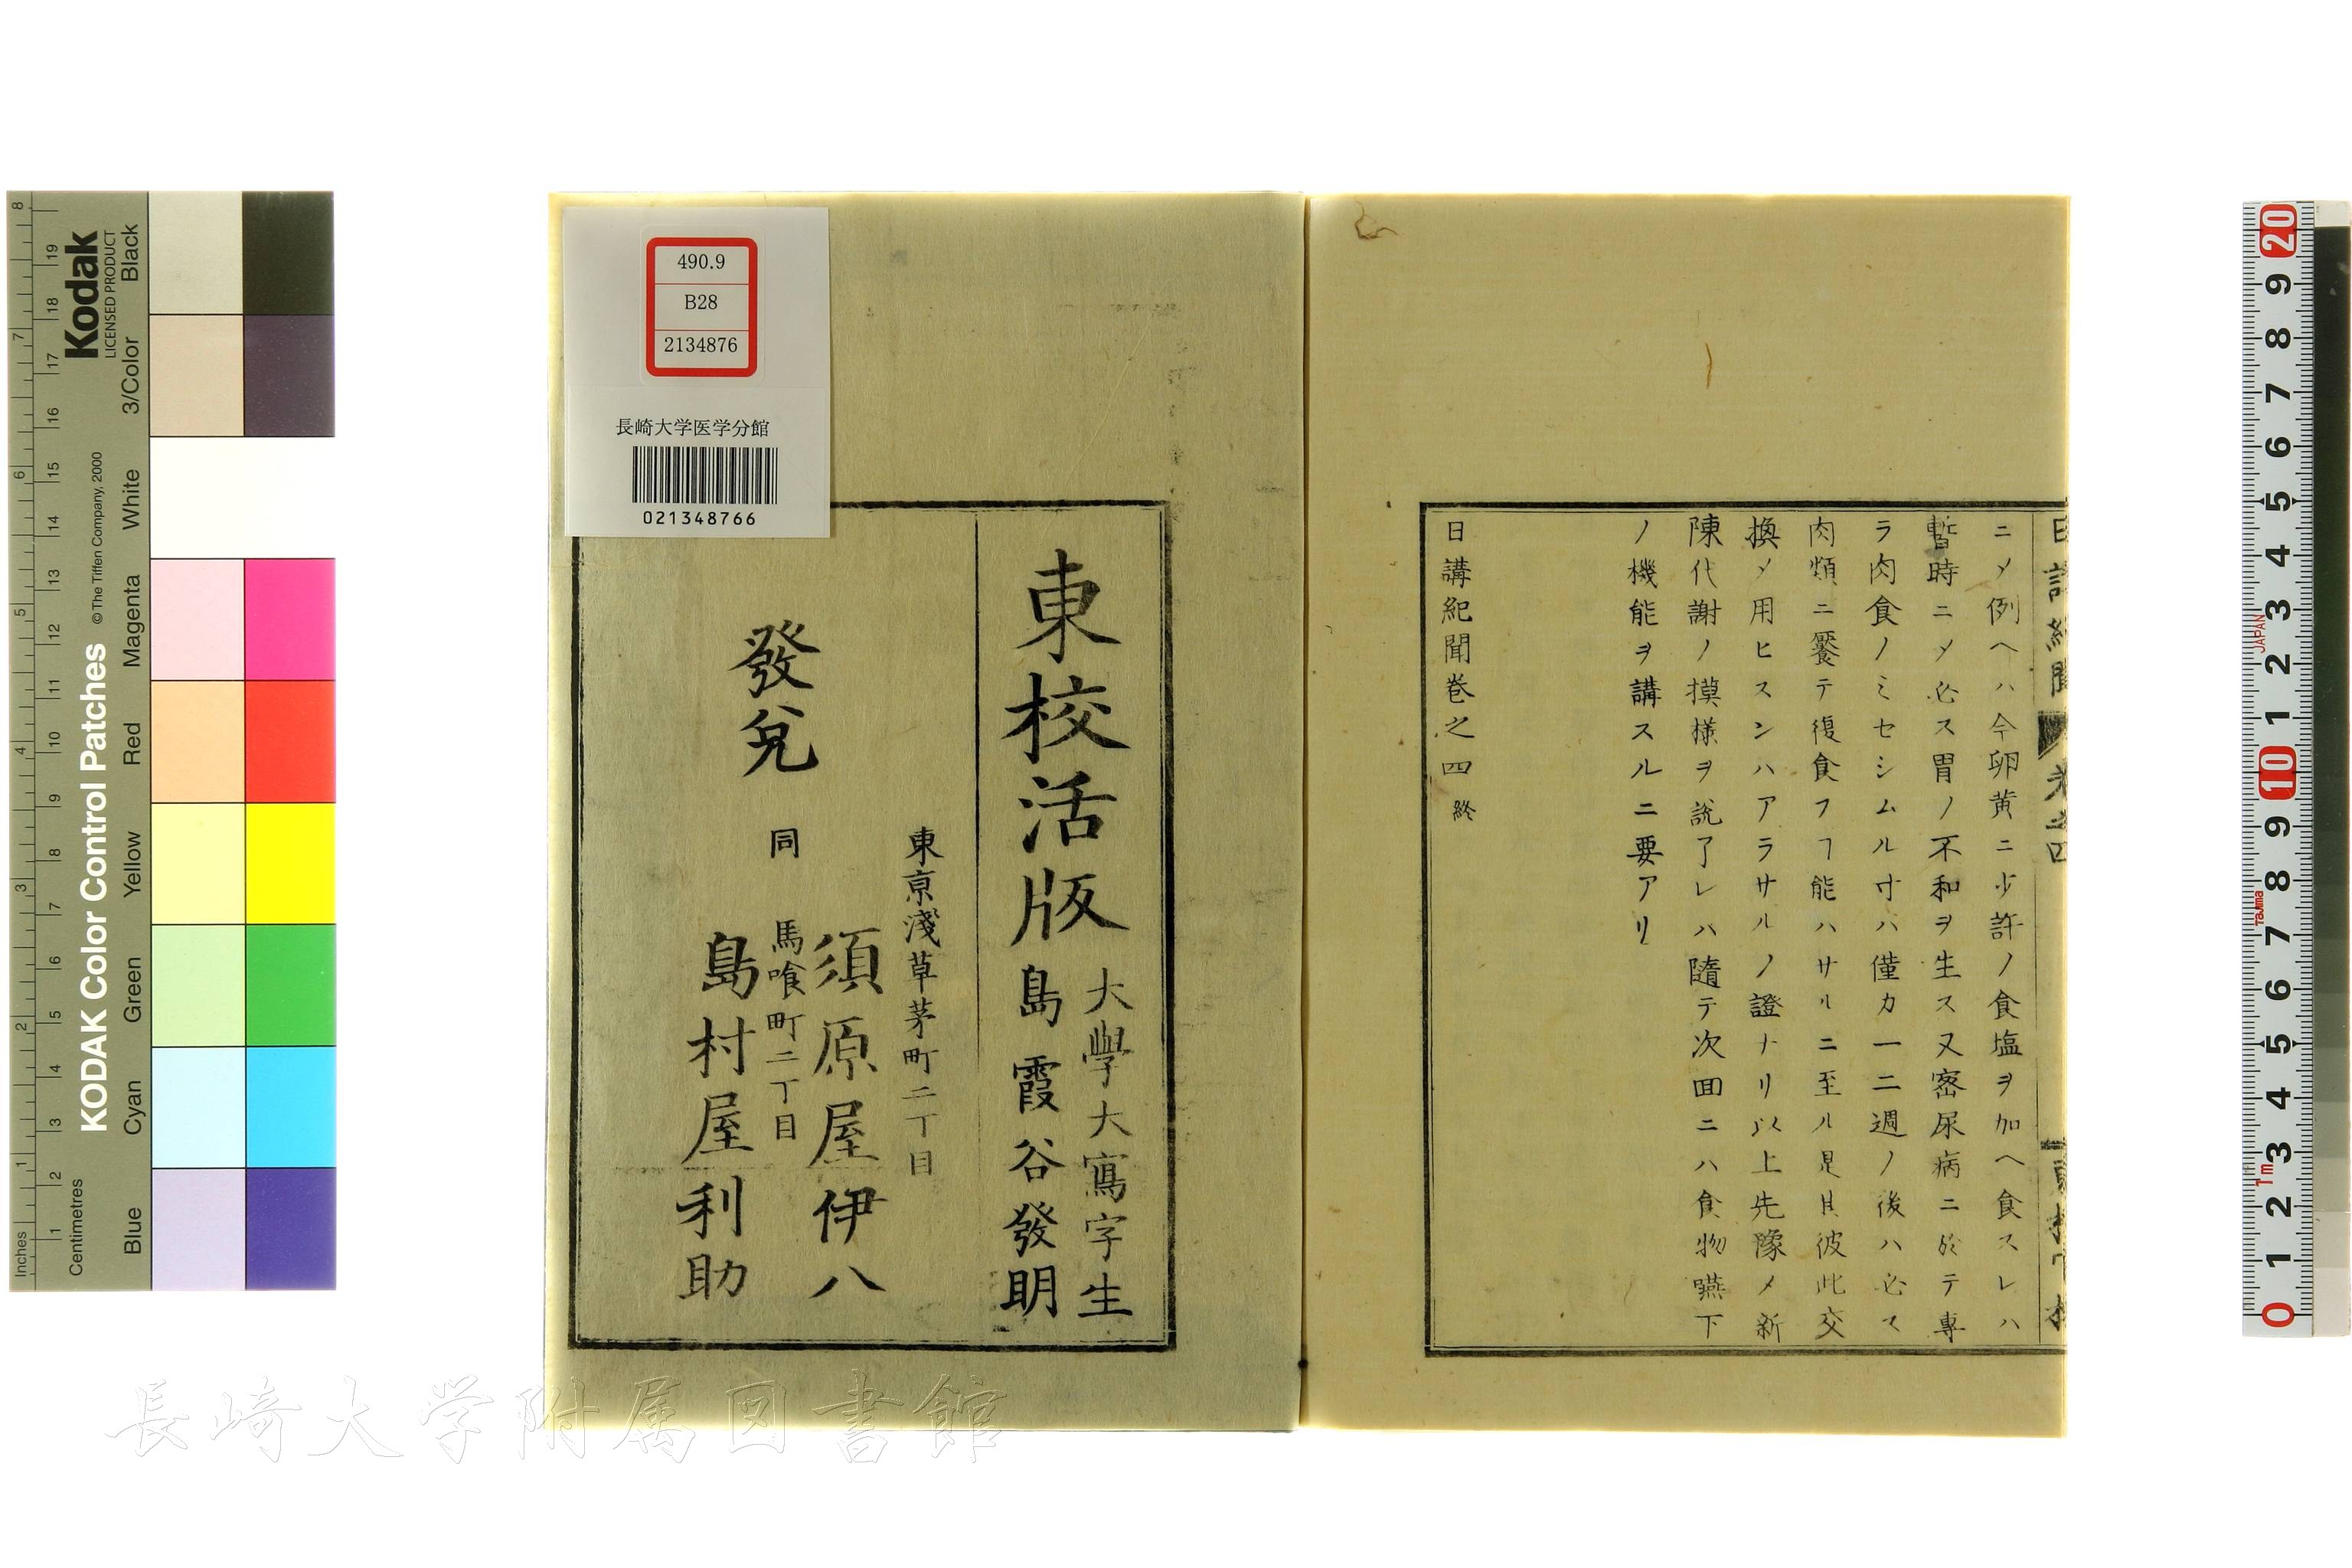 ニㄨ例ヘハ今卵黄ニ少許ノ食塩ヲ加ヘ食スレハ
暫時ニㄨ必ス胃ノ不和ヲ生ス又密尿病ニ於テ專
ラ肉食ノミセシムル寸ハ僅カ一二週ノ後ハ必ス
肉類ニ饜テ復食フヿ能ハサルニ至ル是
彼此交
換ㄨ用ヒスンハアラサルノ證ナリ以上先
メ新
陳代謝ノ摸様ヲ説了レハ隨テ次回ニハ食物嚥下
ノ機能ヲ講スルニ要アリ
日講紀聞巻之四終
東校活版
大學大寫字生
島霞谷發明
發兌
東京淺草茅町二丁目
須原屋伊八
同馬喰町二丁目
島村屋利助
490.9
B28
2134876
長崎大学医学分館
021348766
長崎大学附属図書館
Kodak
LICENSED PRODUCT
KODAK Color Control Patches
© The Tiffen Company, 2000
Inches
1 2 3 4 5 6 7 8
Centimetres
1 2 3 4 5 6 7 8 9 10 11 12 13 14 15 16 17 18 19
Blue
Cyan
Green
Yellow
Red
Magenta
White
3/Color
Black
0 1 2 3 4 5 6 7 8 9 10 1 2 3 4 5 6 7 8 9 20
1m
Tajima
JAPAN